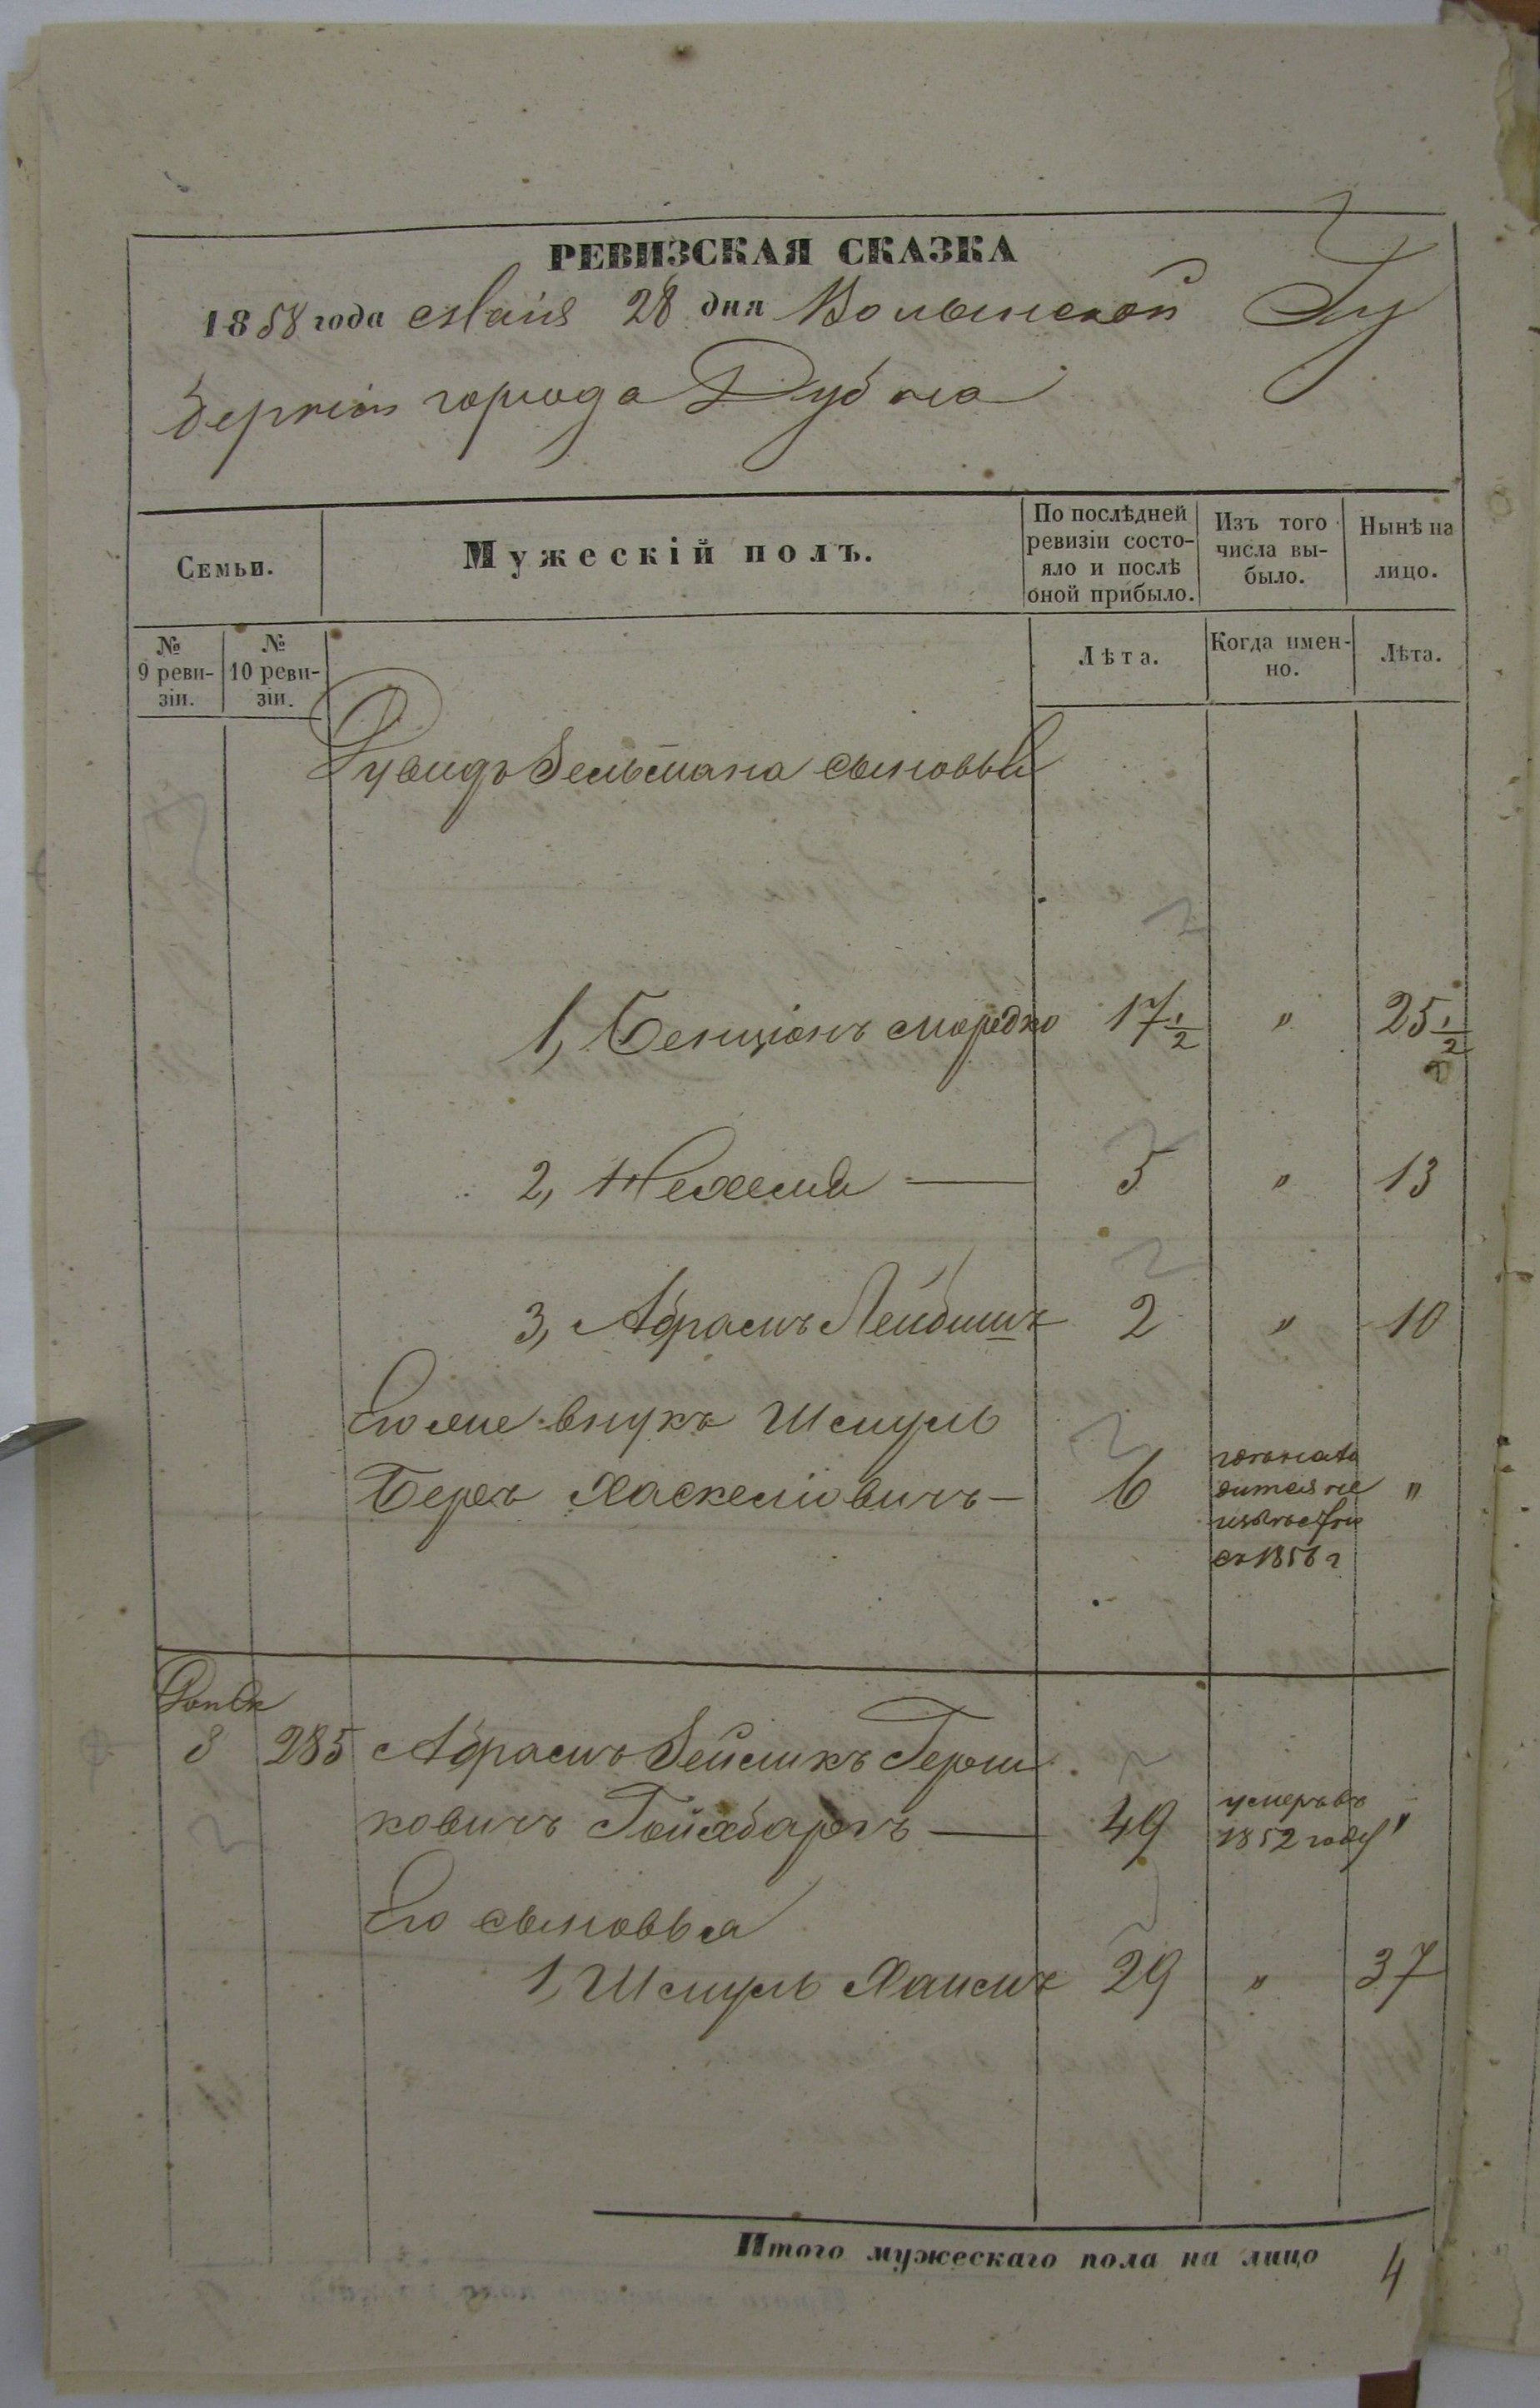 РЕВИЗСКАЯ СКАЗКА
1858 года Маія 28 дня Волынской Гу
берніи города Дубна
Семьи.
Мужескій полъ.
По послѣдней ревизіи состо-
яло и послѣ оной прибыло.
Изъ того числа вы-
было.
Нынѣ на лицо.
№ 9 реви-
зіи.
№ 10 реви-
зіи.
Лѣта.
Когда имен-
но.
Лѣта.
Дувидъ Зельмана сыновья
1, Бенціонъ Мордко 17 1/2 " 25 1/2
2, Нехемя — 5 " 13
3, Абрамъ Лейбишъ 2 " 10
Его же внукъ Шмуль
Беръ Хаскелiовичъ — 6 "
съ 1856 г
8 285 Абрамъ Зейликъ Герш
ковичъ — 49 умеръ въ 1852 году "
Его сыновья
1, Шмуль Хаимъ 29 " 37
Итого мужескаго пола на лицо 4